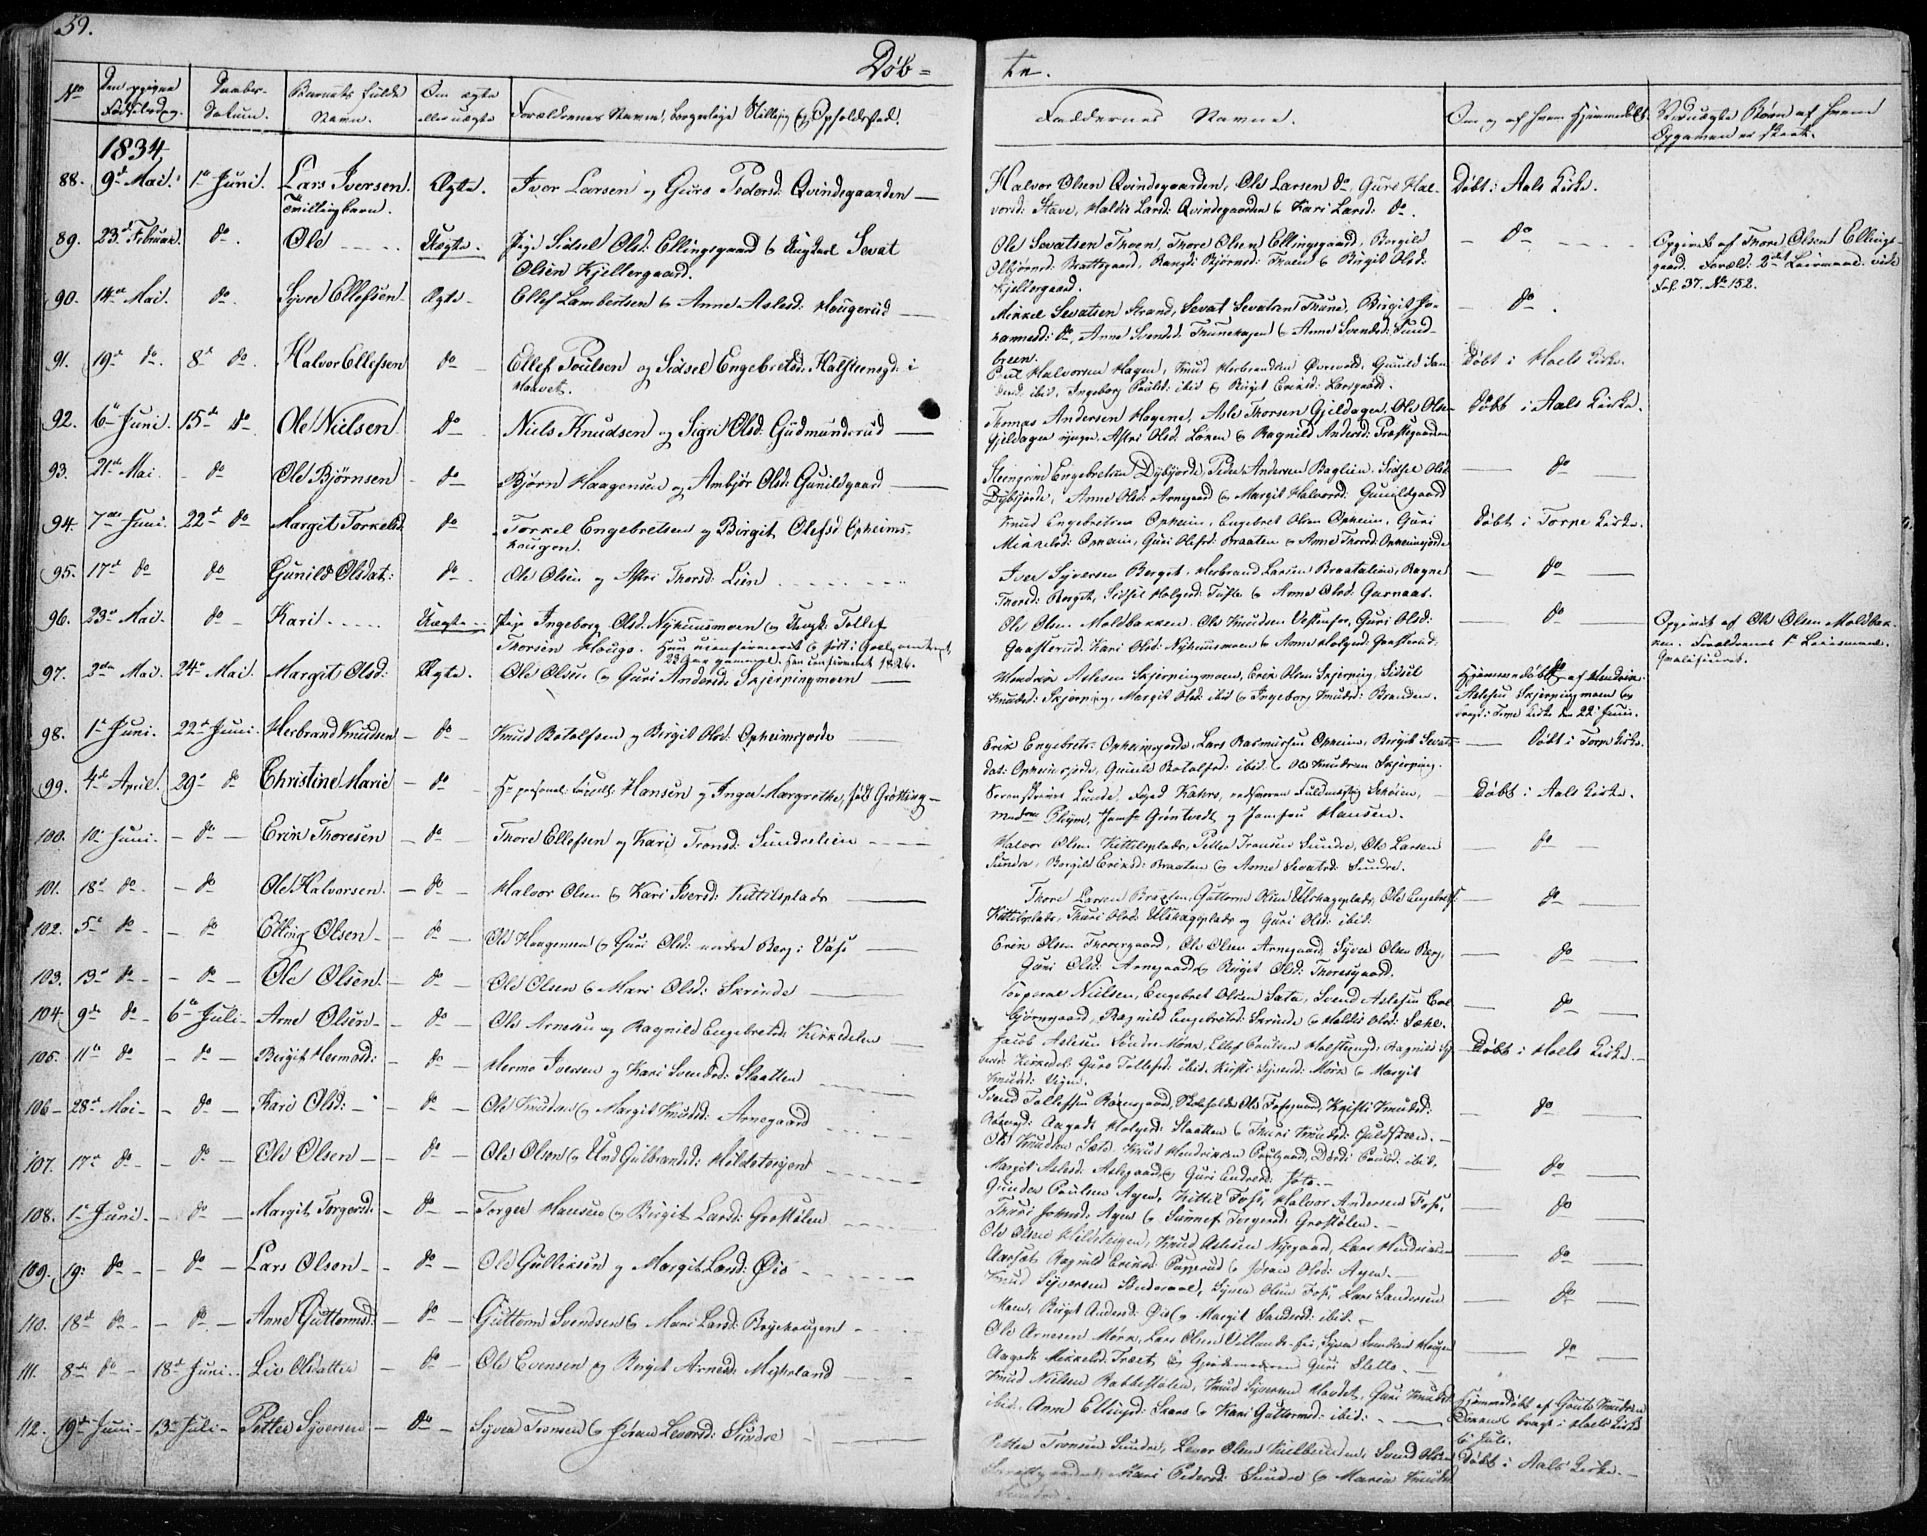 59.
Døb=
te.
No
Den opgivne
Fødselsdag.
Daabs-
Datum.
Barnets fulde
Navn.
Om ægte
eller uægte
Forældrenes Navne, borgerlige Stilling og Opholdsted.
Faddernes Navne.
Om og af hvem Hjemmedøbt.
Ved uægte Børn af hvem
Opgaven er skeet.
1834
88. 9de Mai. 1ste Juni. Lars Iversen. Ægte. Iver Larsen og Guro Pedersd: Qvindegaarden
Tvillingbarn.
Halvor Olsen Qvindegaarden, Ole Larsen do, Guri Hal-
vorsd: Stave, Haldis Larsd: Qvindegaarden & Kari Larsd: do.
Døbt i Aals Kirke.
89. 23de Februar. do. Ole Uægte. Pige Sidsel Olsd: Ellingsgaard & Ungkarl Sevat
Olsen Kjellergaard.
Ole Sevatsen Thoen, Thore Olsen Ellingsgaard, Borgild
Asbjørnsd: Brattegaard, Rangdi Bjørnsd: Thoen & Birgit Olsd:
Kjellergaard.
do
Opgivet af Thore Olsen Ellings-
gaard. Foræld: 2det Leiermaal. vide
Fol. 37. No 152.
90. 14de Mai. do. Syver Ellefsen Ægte. Ellef Lambertsen & Anne Aslesd: Hougerud
Mikkel Sevatsen Strand, Sevat Sevatsen Thune, Birgit Jo-
hannesd: do, Anne Svendsd: Thunehagen & Anne Svendsd: Sund-
breen.
do.
91. 19de do. 8de do Halvor Ellefsen do Ellef Poulsen og Sidsel Engebretsd: Halsteensgd: i
Havet.
Poul Halvorsen Hagen, Knud Herbrandsen Øvrevold, Gunild
ibid, Ingeborg Poulsd: ibid & Birgit Eriksd: Larsgaard.
Døbt i Hoels Kirke.
92. 6te Juni. 15de do. Ole Nielsen do Niels Knudsen og Sigri Olsd: Gudmundsrud
Thomas Andersen Hagene, Asle Thorsen Gjeldagen, Ole Olsen
Gjeldagen yngre, Astri Olsd: Løken & Ragnild Andersd: Præstegaarden
Døbt i Aals Kirke.
93. 21de Mai. do Ole Bjørnsen do Bjørn Haagensen og Ambjør Olsd: Gunildgaard
Steengrim Engebretsen Dybjorde, Peder Andersen Baglien, Sidsel Olsd:
Dybjorde, Anne Olsd: Arnegaard & Margit Halvorsd: Gunildgaard
do
94. 7de Juni. 22de do Margit Torkelsd: do Torkel Engebretsen og Birgit Olefsd Opheims-
hougen.
Knud Engebretsen Opheim, Engebret Olsen Opheim, Guri
Mikkelsd: Opheim, Guri Olefsd: Braaten & Anne Thorsd: Opheimsjorde
Døbt i Torpe Kirke.
95. 17de do do Gunild Olsdat: do. Ole Olsen og Astri Thorsd: Lien
Iver Syversen Berget, Herbrand Larsen Braatalien, Ragne
Thorsd: Berget, Sidsel Holgersd: Tufte & Anne Olsd: Garnaas.
do
96. 23de Mai. do Kari Uægte. Pige Ingeborg Olsd: Nyhuusmoen & Ungk: Tollef
Thorsen Hougo. Hun uconfirmeret & født i Goels præstegjeld
23 Aar gammel. Han confirmeret 1826.
Ole Olsen Moldbakken, Ole Knudsen Vestenfor, Guri Olsd:
Gaasterud, Kari Olsd: Nyhuusmoen & Anne Holgersd: Gaasterud.
do
Opgivet af Ole Olsen Moldbak-
ken. Forældrenes 1ste Leiermaal.
97. 2den Mai. 24de Mai. Margit Olsd: Ægte. Ole Olsen & Guri Andersd: Skjerpingmoen
Hendrik Aslesen Skjerpingmoen, Erik Olsen Skjerping, Sidsel
Knudsd: Skjerping, Margit Olsd: ibid & Ingeborg Knudsd: Brenden.
Hjemmedøbt af Hendrik
Aslesen Skjerpingmoen &
bragt i Torpe Kirke den 22de Juni.
98. 1ste Juni. 22de Juni. Herbrand Knudsen do Knud Botolfsen og Birgit Olsd: Opheimsjorde
Erik Engebrets: Opheimsjorde, Lars Rasmusen Opheim, Birgit Sevats-
dat: Opheimsjorde, Gunild Botolfsd: ibid. & Ole Knudsen Skjerping.
Døbt i Torpe Kirke.
99. 4de April. 29de do Christine Marie do Hr personel Capell: Hansen og Inger Margrethe, født Grøtting
Sorenskriver Lunde, Foged Kahrs, Fuldmægtig Schøien,
Madme Blom, Jomfr Grøntvedt og Jomfru Hansen.
Døbt i Aals Kirke.
100. 10de Juni. do Erik Thoresen do Thore Ellefsen og Kari Tronsd: Sundrelien
Halvor Olsen Kittilsplads, Petter Tronsen Sundre, Ole Larsen
Sundre, Borgild Eriksd: Braaten & Anne Sevatsd: Sundre.
do
101. 18de do. do Ole Halvorsen. do Halvor Olsen & Kari Iversd: Kittilsplads
Thore Larsen Braaten, Guttorm Olsen Ulshagsplads, Ole Engebrets:
Kittilsplads, Thuri Olsd: Ulshagsplads og Guri Olsd: ibid.
do
102. 5te do do Elling Olsen do Ole Haagensen & Guri Olsd: nordre Berg i Vats
Erik Olsen Thoresgaard, Ole Olsen Arnegaard, Syver Olsen Berg,
Guri Olsd: Arnegaard & Birgit Olsd: Thoresgaard.
do
103. 13de do do Ole Olsen do Ole Olsen & Mari Olsd: Skrinde
Torgeir Nielsen, Engebret Olsen Sata, Svend Aslesen Es-
bjørngaard, Ragnild Engebretsd: Skrinde & Haldis Olsd: Sæhl.
do
104. 9de do 6te Juli Arne Olsen do Ole Arnesen og Ragnild Engebretsd: Kirkedelen
Jacob Aslesen Søndre Mørk, Ellef Poulsen Halsteensgd: Ragnild
Kirkedel: Guro Tollefsd: ibid, Kirsti Syversd: Mørk & Margit
Knudsd: Vigen.
Døbt i Hoels Kirke.
105. 11te do do Birgit Hermosd: do Hermo Iversen og Kari Svendsd: Slaatten
Svend Tollefsen Raensgaard, Ole Fossgaard, Kristi Knudsd:
Raensgd: Aagodt Holgersd: Slaatten & Thuri Knudsd: Guldsteen.
do
106 28de Mai do Kari Olsd: do Ole Knudsen & Margit Knudsd: Arnegaard
Ole Knudsen Sæte, Knud Hendriksen Poulgaard, Dordi Poulsd: ibid,
Margit Aslesd: Aslegaard & Guri Endresd: Jøto.
do
107. 17de do do Ole Olsen do Ole Olsen & Und Gulbrandsd: Hildesteigen
Gunder Poulsen Ayen, Kittil Foss, Halvor Andersen Foss,
Thuri Johnsd: Ayen & Sunnef Torgersd: Grostølen.
do
108. 1ste Juni. do Margit Torgersd: do Torger Hansen & Birgit Larsd: Grostølen
Ole Olsen Hildesteigen, Knud Aslesen Nygaard, Lars Hendriksen
Aarset, Ragnild Eriksd: Pupperud & Jøran Olsd: Ayen.
do
109. 19: do do Lars Olsen do Ole Gulliksen og Margit Larsd: Øio
Knud Syversen Sundreaal, Syver Olsen Foss, Lars Sandersen
Moen, Birgit Andersd: Øio & Margit Sandersd: ibid.
do
110. 18de do do Anne Guttormsd: do Guttorm Svendsen & Mari Larsd: Brøgehougen
Ole Arnesen Mørk, Lars Olsen Villandseie, Syver Svendsen Hougen
Aagodt Mikkelsd: Træet & Gjordemoderen Guri Slette
do
111. 8de do 18de Juni. Liv Olsdatter do Ole Evensen og Birgit Arnesd: Myhrland
Knud Nielsen Rabbestølen, Knud Syversen Havdet, Guri Knudsd:
ibid, Anne Ellingsd: Skare & Kari Guttormsd: ibid:
Hjemmedøbt af Gout Knudsen
& bragt i Hoels Kirke
6 Juli.
112. 19de Juni 13de Juli Petter Syversen do Syver Tronsen & Jøran Levorsd: Sundre
Petter Tronsen Sundre, Levor Olsen Kielbunden, Svend Olsen
Mari Pedersd: Sundre & Maria Knudsd:
Sundre.
Døbt i Aals Kirke.